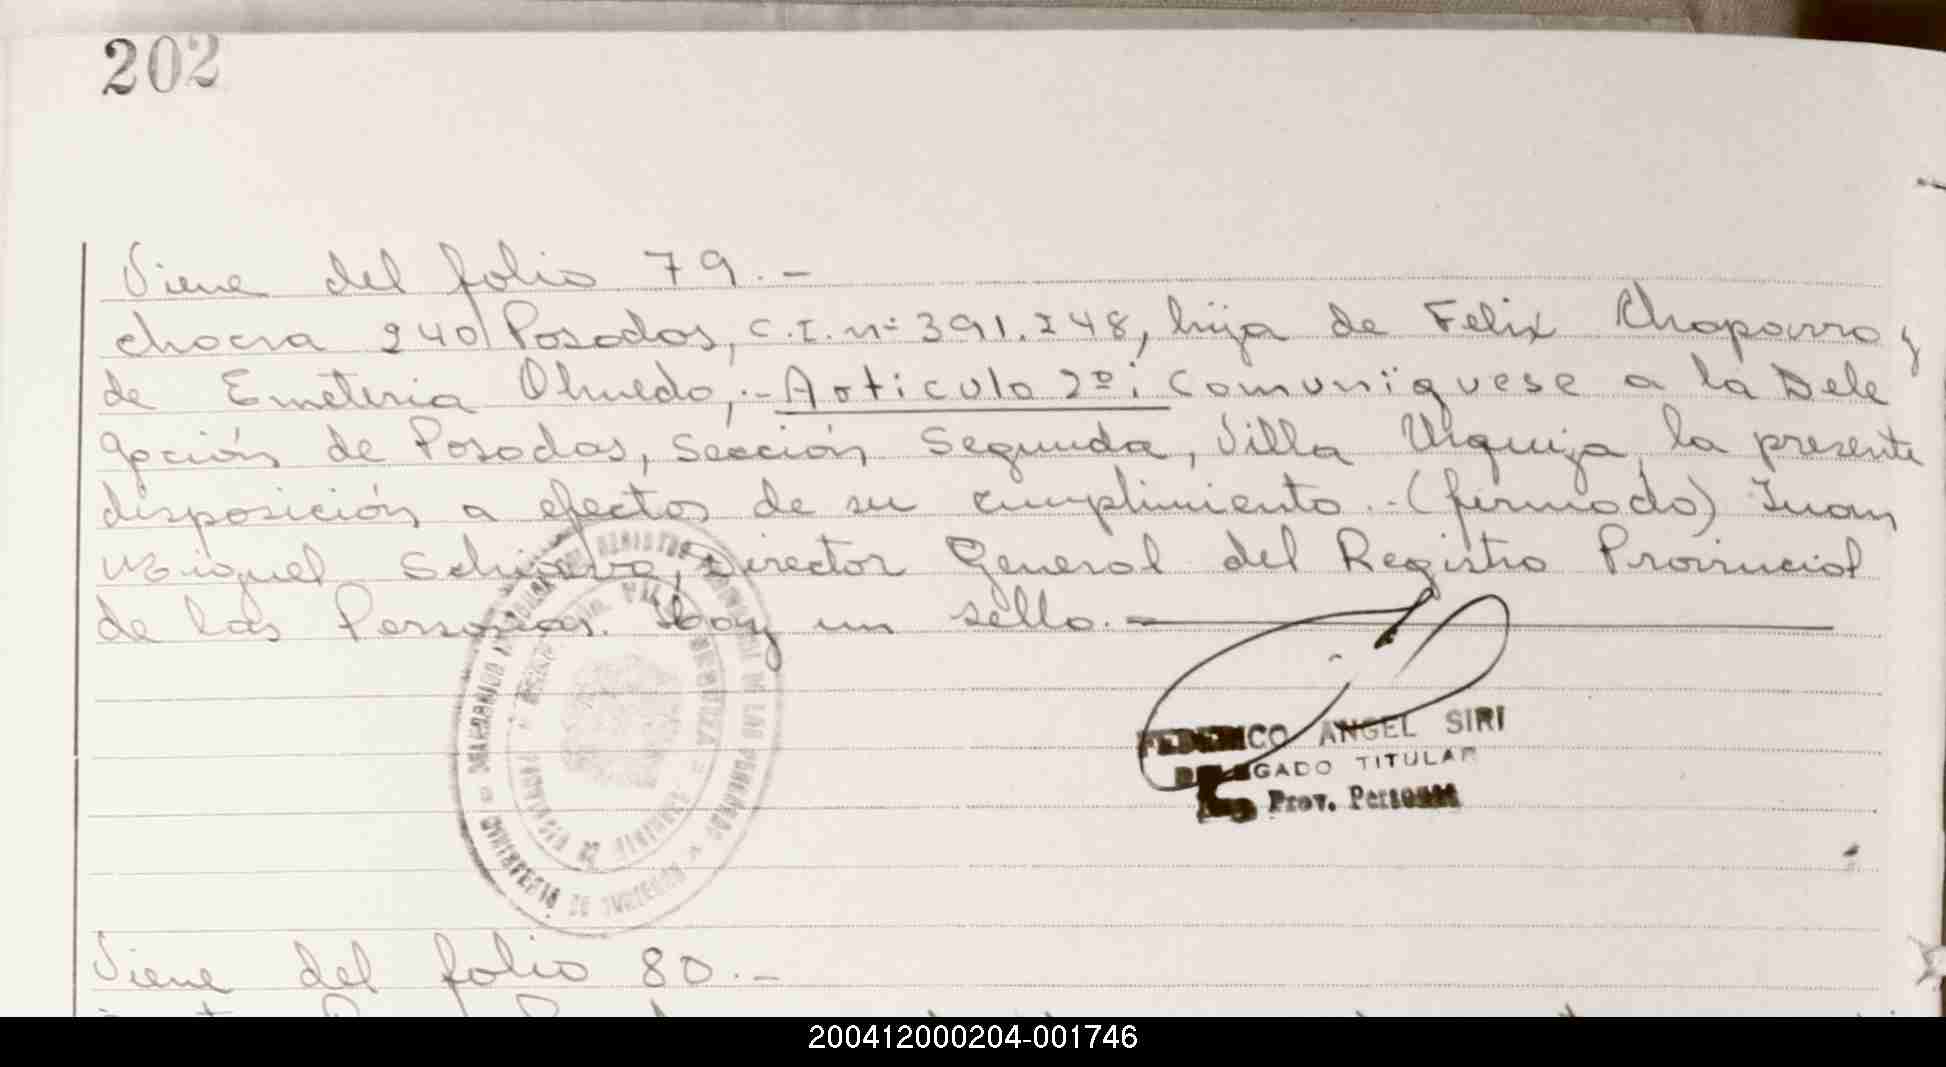 202
Viene del folio 79.-
chacra 240 Posadas, C.I. nº 391.248, hija de Felix Chaparro y
de Emeteria Olmedo,.- Artículo 2º: Comuníquese a la Dele
gación de Posadas, Sección Segunda, Villa Urquiza, la presente
disposición a efectos de su cumplimiento.- (firmado) Juan
Miguel Director General del Registro Provincial
de las Personas. Hay un sello.-
FEDERICO ANGEL SIRI
DELEGADO TITULAR
Prov. Personas
Viene del folio 80.-
200412000204-001746